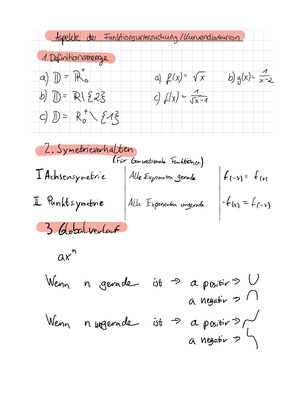 Aspekte der Funktionsuntersuchung/Kurvendiskussion
1. Definitionsmenge
a) D = R₀⁺ a) f(x) = √x b) g(x) = 1/(x-2)
b) D = R\{2} c) f(x) = 1/(√x-1)
c) D = R₀⁺ \ {1}
2. Symetrieverhalten
(Für Ganzrationale Funktionen)
I Achsensymetrie Alle Exponenten gerade f(-x) = f(x)
II Punktsymetrie Alle Exponenten ungerade -f(x) = f(-x)
3. Globalverlauf
axⁿ
Wenn n gerade ist → a positiv →
a negativ →
Wenn n ungerade ist → a positiv →
a negativ →